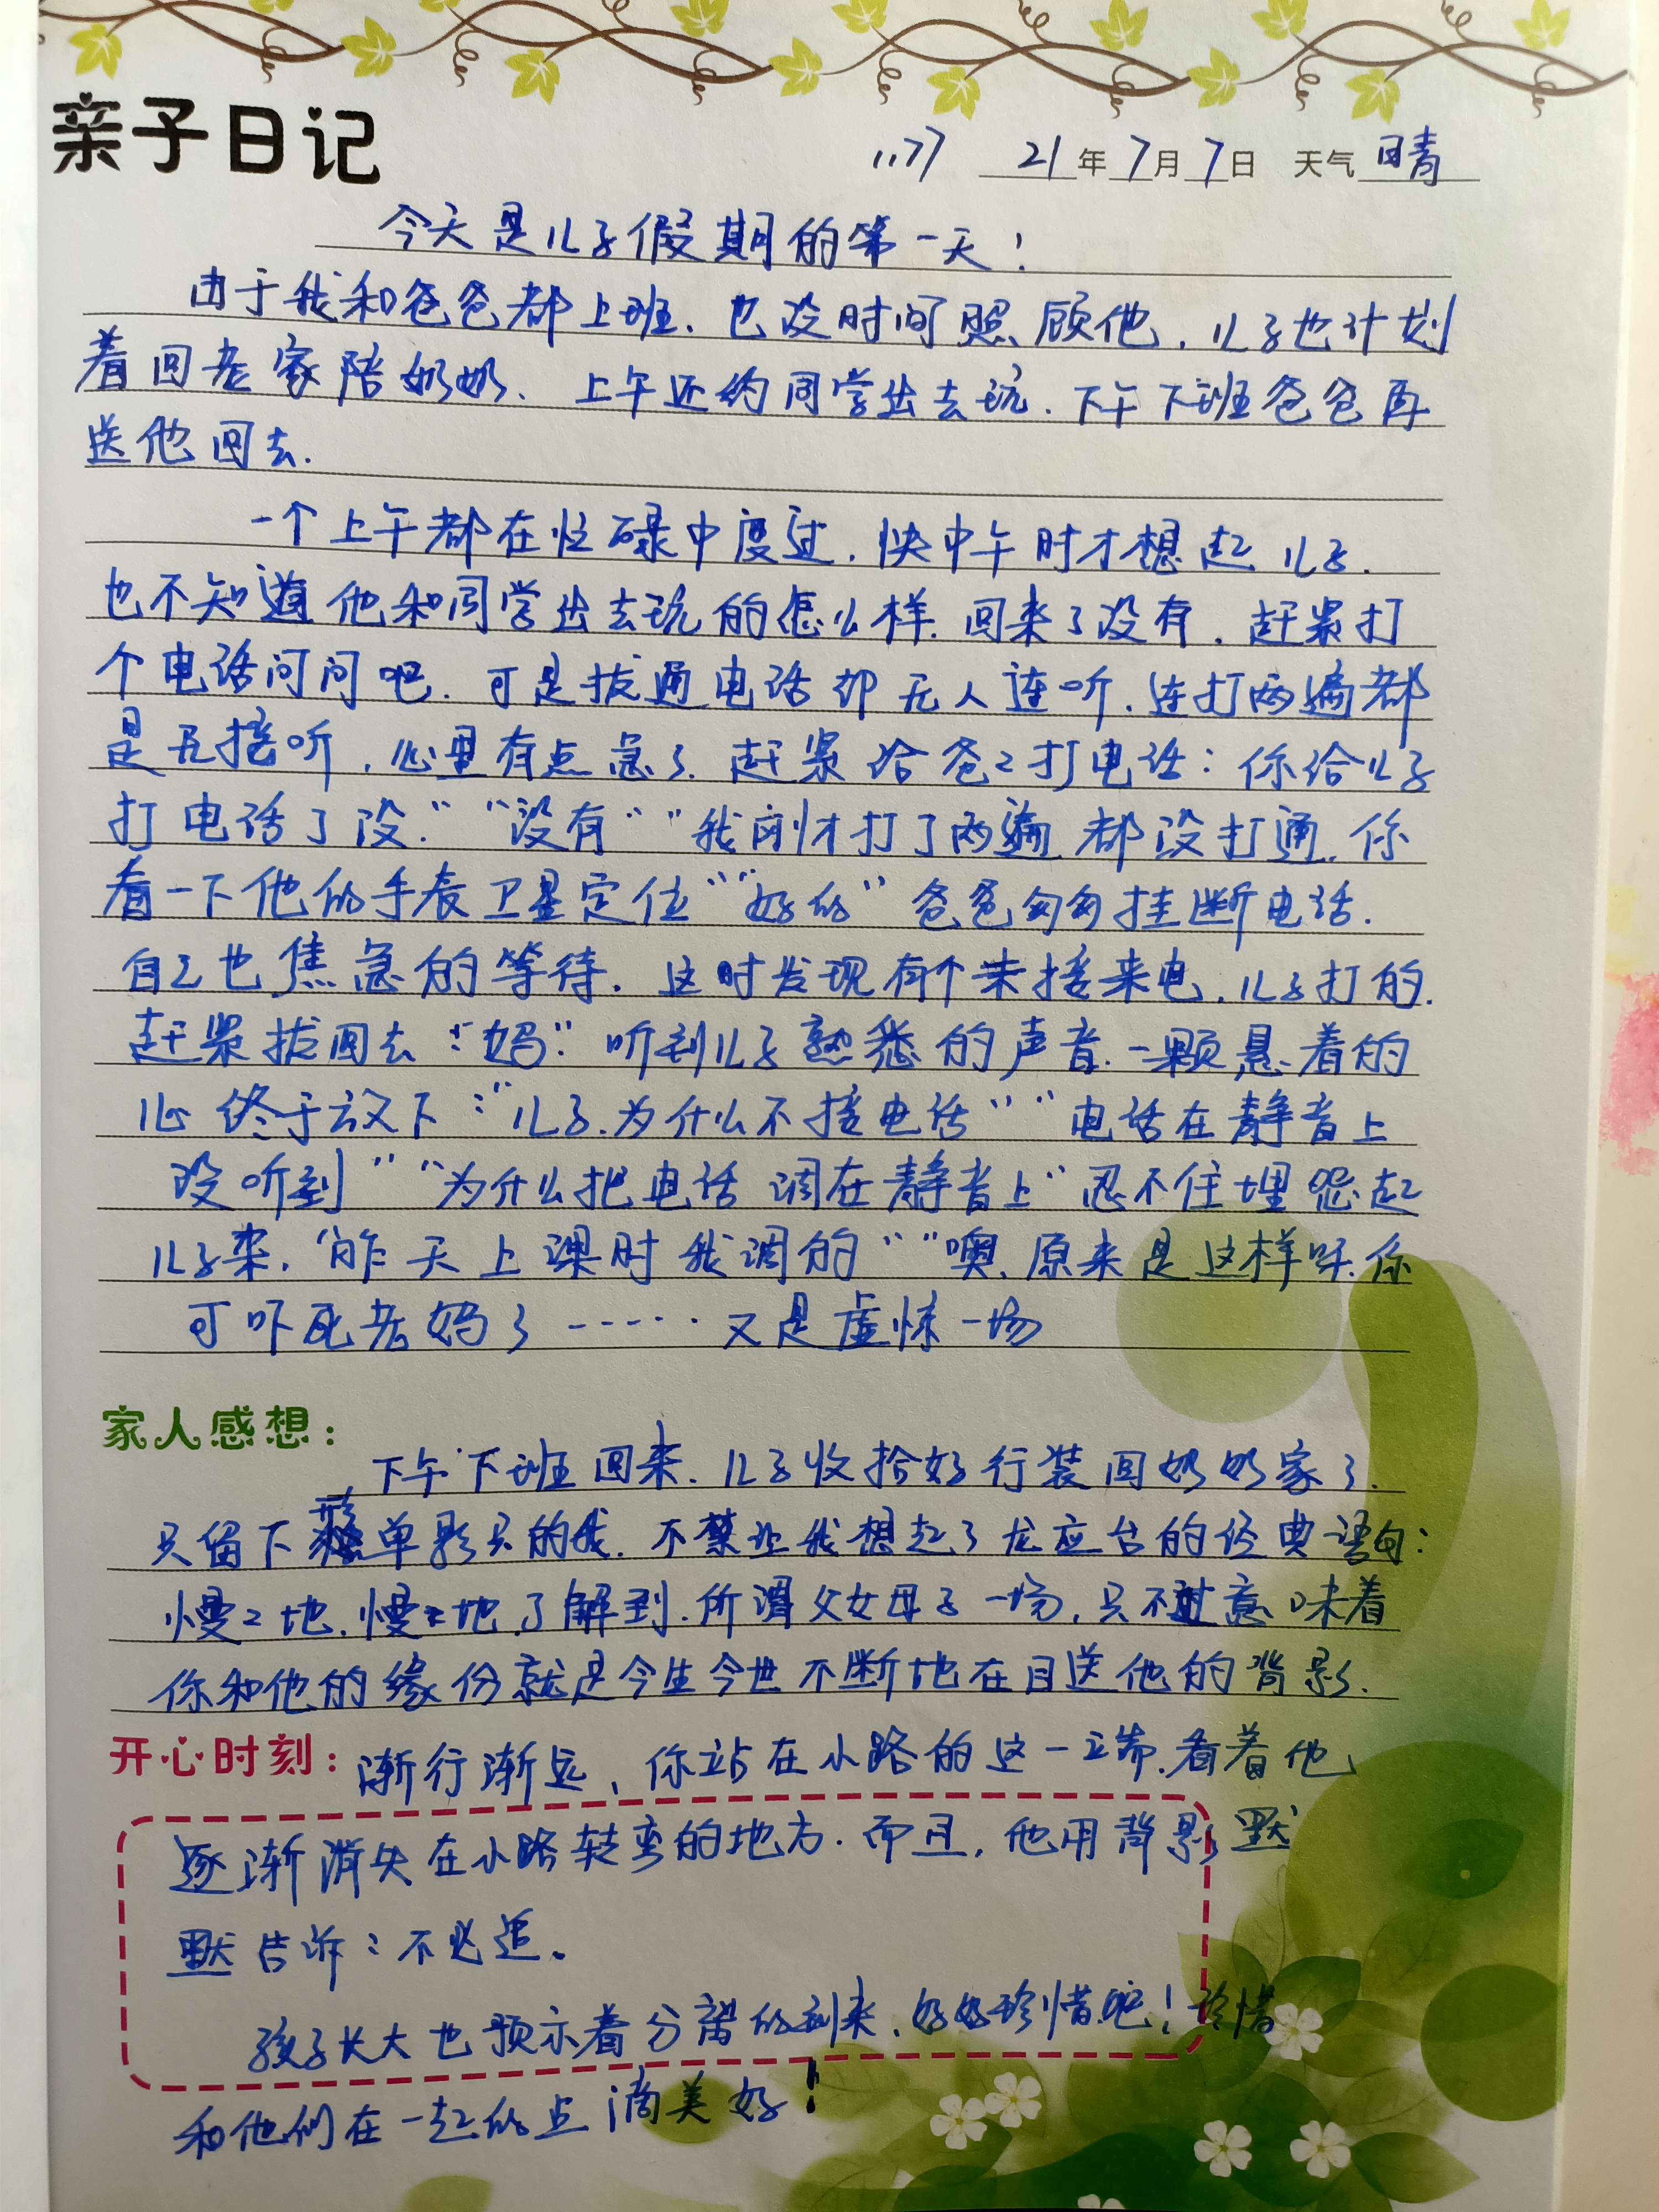 亲子日记
1177 21年7月7日 天气晴
今天是儿子假期的第一天！
由于我和爸爸都上班.也没时间照顾他.儿子也计划
着回老家陪奶奶、上午还约同学出去玩.下午下班爸爸再
送他回去.
一个上午都在忙碌中度过.快中午时才想起儿子.
也不知道他和同学出去玩的怎么样.回来了没有.赶紧打
个电话问问吧.可是拔通电话却无人连听.连打两遍都
是无接听.心里有点急了.赶紧给爸爸打电话：你给儿子
打电话了没.““没有““我刚才打了两遍都没打通.你
看一下他的手表卫星定位““好的”爸爸匆匆挂断电话.
自己也焦急的等待.这时发现有个未接来电.儿子打的.
赶紧拔回去：“妈”听到儿子熟悉的声音.一颗悬着的
心终于放下：“儿子.为什么不接电话““电话在静音上
没听到““为什么把电话调在静音上“忍不住埋怨起
儿子来.“昨天上课时我调的““噢.原来是这样呀.你
可吓死老妈了……又是虚惊一场
家人感想：
下午下班回来.儿子收拾好行装回奶奶家了.
只留下形单影只的我.不禁让我想起了龙应台的经典语句：
慢慢地.慢慢地.了解到.所谓父女母子一场.只不过意味着
你和他的缘份就是今生今世不断地在目送他的背影.
开心时刻：渐行渐远、你站在小路的这一端.看着他
逐渐消失在小路转弯的地方.而且.他用背影默
默告诉：不必追。
孩子长大也预示着分离的到来.好好珍惜吧！珍惜
和他们在一起的点滴美好！